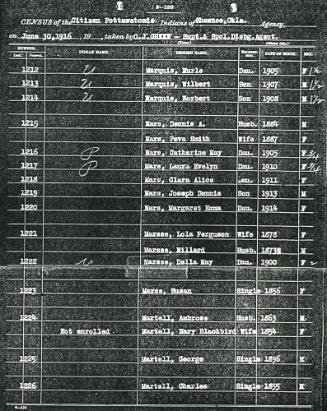 5-128
CENSUS of the Citizen Pottawatomie Indians of Shawnee, Okla. Agency,
on June 30, 1916 19 , taken by C.J.GREEN - Supt.& Spcl.Disbg.Agent.
NUMBER. INDIAN NAME. ENGLISH NAME. DATE OF BIRTH. SEX.
Last. Present.
1212 Marquis, Murle Dau. 1905 F
1213 Marquis, Wilbert Son 1907 M
1214 Marquis, Norbert Son 1908 M
1215 Mars, Dennis A. Husb. 1884 M
Mars, Peva Smith Wife 1887 F
1216 Mars, Catharine May Dau. 1905 F
1217 Mars, Laura Evelyn Dau. 1910 F
1218 Mars, Clara Alice Dau. 1911 F
1219 Mars, Joseph Dennis Son 1913 M
1220 Mars, Margaret Emma Dau. 1914 F
1221 Marsee, Lola Ferguson Wife 1878 F
Marsee, Millard Husb. 1873 M
1222 Marsee, Della May Dau. 1900 F
1223 Marse, Susan Single 1856 F
1224 Martell, Ambrose Husb. 1863 M
Not enrolled Martell, Mary Blackbird Wife 1854 F
1225 Martell, George Single 1896 M
1226 Martell, Charles Single 1855 M